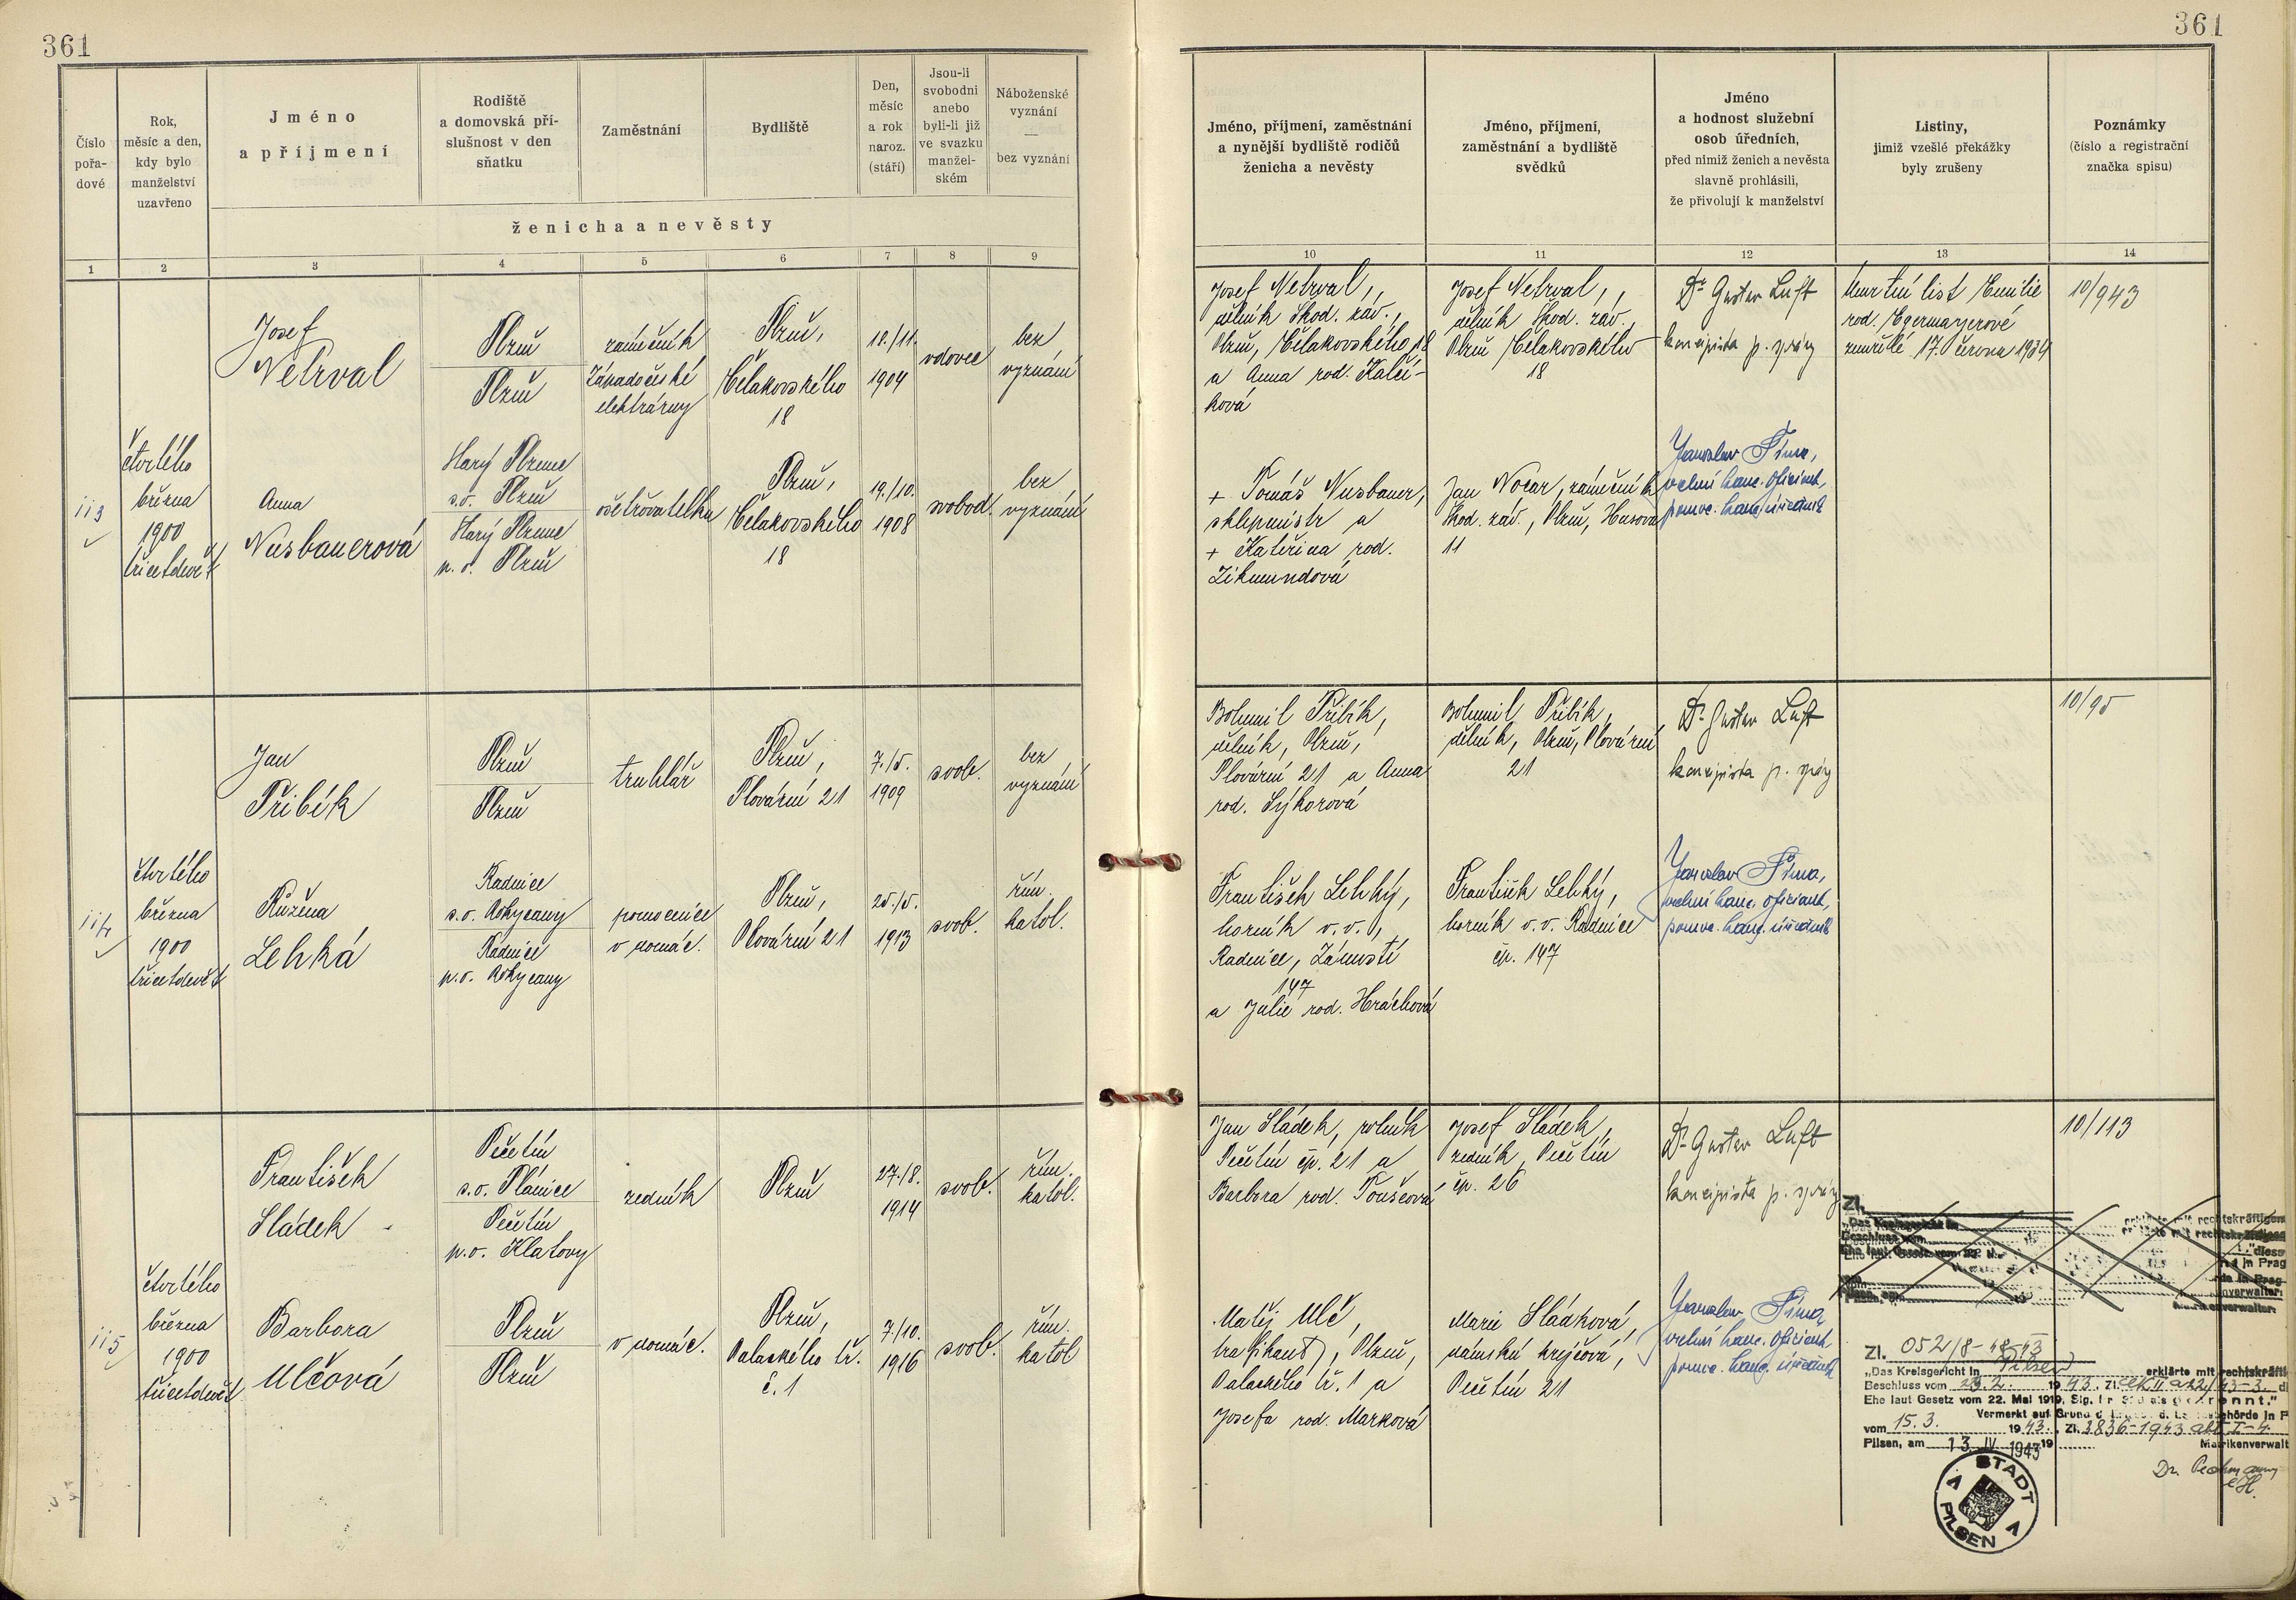 361
361
Číslo
pořa-
dové
Rok,
měsíc a den,
kdy bylo
manželství
uzavřeno
Jméno
a příjmení
Rodiště
a domovská pří-
slušnost v den
sňatku
Zaměstnání
Bydliště
Den,
měsíc
a rok
naroz.
(stáří)
Jsou-li
svobodni
anebo
byli-li již
ve svazku
manžel-
ském
Náboženské
vyznání
—
bez vyznání
ženicha a nevěsty
Jméno, příjmení, zaměstnání
a nynější bydliště rodičů
ženicha a nevěsty
Jméno, příjmení,
zaměstnání a bydliště
svědků
Jméno
a hodnost služební
osob úředních,
před nimiž ženich a nevěsta
slavně prohlásili,
že přivolují k manželství
Listiny,
jimiž vzešlé překážky
byly zrušeny
Poznámky
(číslo a registrační
značka spisu)
1 2 3 4 5 6 7 8 9
10 11 12 13 14
113
čtvrtého
března
1900
třicetdevět
Josef
Netrval
Plzeň
Plzeň
zámečník
Západočeské
elektrárny
Plzeň,
Čelakovského
18
18./11.
1904
vdovec
bez
vyznání
Anna
Nusbauerová
Starý Plzenec
s.o. Plzeň
Starý Plzenec
p. o. Plzeň
ošetřovatelka
Plzeň,
Čelakovského
18
19./10.
1908
svobod.
bez
vyznání
Josef Netrval,
dělník Škod. záv.,
Plzeň, Čelakovského 18
a Anna rod. Kalči-
ková
+ Tomáš Nusbauer,
sklepmistr a
+ Kateřina rod.
Zikmundová
Josef Netrval,
dělník Škod. záv.
Plzeň Čelakovského
18
Jan Nocar, zámečník
Škod. záv., Plzeň, Husova
11
Dr Gustav Luft
koncipista p. správy
Jaroslav Šíma,
vrchní kanc. oficiant,
pomoc. kanc. úředník
Úmrtní list Emilie
rod. Egermayerové
zemřelé 17. června 1934
10/943
114
čtvrtého
března
1900
třicetdevět
Jan
Přibík
Plzeň
Plzeň
truhlář
Plzeň,
Plovární 21
7./5.
1909
svob.
bez
vyznání
Růžena
Lehká
Radnice
s.o. Rokycany
Radnice
p.o. Rokycany
pomocnice
v domác.
Plzeň,
Plovární 21
25./5.
1913
svob.
řím.
katol.
Bohumil Přibík,
dělník, Plzeň,
Plovární 21 a Anna
rod. Sýkorová
František Lehký,
horník v.v.,
Radnice, Zámostí
147
a Julie rod. Hráchová
Bohumil Přibík,
dělník, Plzeň, Plovární
21
František Lehký,
horník v.v. Radnice
čp. 147
Dr Gustav Luft
koncipista p. správy
Jaroslav Šíma,
vrchní kanc. oficiant,
pomoc. kanc. úředník
10/95
115
čtvrtého
března
1900
třicetdevět
František
Sládek
Pečetín
s.o. Plánice
Pečetín
p.o. Klatovy
zedník
Plzeň
27./8.
1914
svob.
řím.
katol.
Barbora
Ulčová
Plzeň
Plzeň
v domác.
Plzeň,
Palackého tř.
č. 1
7./10.
1916
svob.
řím.
katol
Jan Sládek, rolník
Pečetín čp. 21 a
Barbora rod. Toušeová
Matěj Ulč,
trafikant, Plzeň,
Palackého tř. 1 a
Josefa rod. Marková
Josef Sládek,
zedník, Pečetín
čp. 26
Marie Sládková,
dámská krejčová,
Pečetín 21
Dr Gustav Luft
koncipista p. správy
Jaroslav Šíma,
vrchní kanc. oficiant
pomoc. kanc. úředník
10/113
Zl.
„Das Kreisgericht in
erklärte mit rechtskräftigem
Beschluss vom
Zl. 0521/8-48-43
„Das Kreisgericht in Pilsen erklärte mit rechtskräfti
Beschluss vom 23.2. 1943. Zl.
Ehe laut Gesetz vom 22. Mai 1919, Slg. getrennt."
Vermerkt auf Grund
vom 15.3. 1943. Zl. 3836-1943
Pilsen, am 13. IV 1943
Matrikenverwalt
STADT
PILSEN